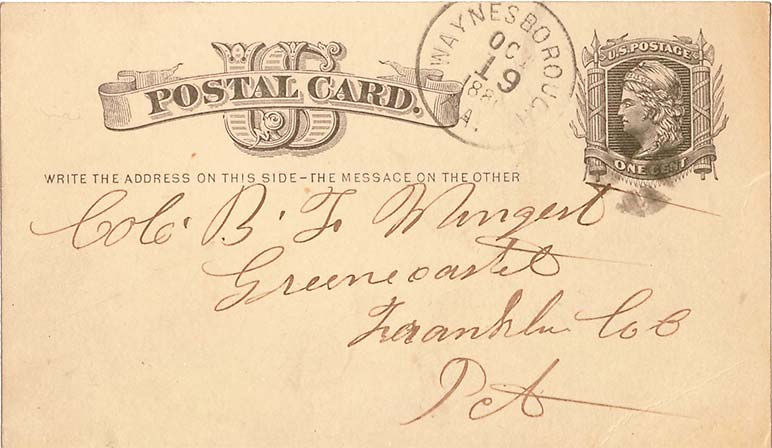 US
POSTAL CARD.
WAYNESBOROUGH
OCT
19
188
A.
U.S. POSTAGE
ONE CENT
WRITE THE ADDRESS ON THIS SIDE – THE MESSAGE ON THE OTHER
Col. B. F. Wingert
Greenecastel
Franklin Co
Pa